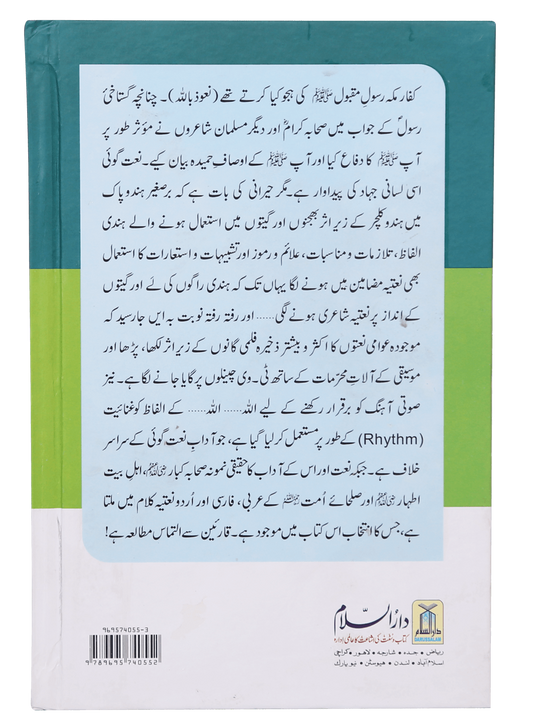 کفار مکہ رسولِ مقبول ﷺ کی ہجو کیا کرتے تھے (نعوذ باللہ)۔ چنانچہ گستاخیٔ
رسولؐ کے جواب میں صحابہ کرامؓ اور دیگر مسلمان شاعروں نے مؤثر طور پر
آپ ﷺ کا دفاع کیا اور آپ ﷺ کے اوصافِ حمیدہ بیان کیے۔ نعت گوئی
اسی لسانی جہاد کی پیداوار ہے۔ مگر حیرانی کی بات ہے کہ برصغیر ہند و پاک
میں ہندو کلچر کے زیرِ اثر بھجنوں اور گیتوں میں استعمال ہونے والے ہندی
الفاظ، تلازمات و مناسبات، علائم و رموز اور تشبیہات و استعارات کا استعمال
بھی نعتیہ مضامین میں ہونے لگا یہاں تک کہ ہندی راگوں کی لَے اور گیتوں
کے انداز پر نعتیہ شاعری ہونے لگی...... اور رفتہ رفتہ نوبت بہ ایں جا رسید کہ
موجودہ عوامی نعتوں کا اکثر و بیشتر ذخیرہ فلمی گانوں کے زیرِ اثر لکھا، پڑھا اور
موسیقی کے آلاتِ محرّمات کے ساتھ ٹی۔وی چینلوں پر گایا جانے لگا ہے۔ نیز
صوتی آہنگ کو برقرار رکھنے کے لیے اللہ...... اللہ...... کے الفاظ کو غنائیت
(Rhythm) کے طور پر مستعمل کر لیا گیا ہے، جو آدابِ نعت گوئی کے سراسر
خلاف ہے۔ جبکہ نعت اور اس کے آداب کا حقیقی نمونہ صحابہ کبار رضی اللہ عنہم، اہلِ بیت
اطہار رضی اللہ عنہم اور صلحائے اُمت رحمہم اللہ کے عربی، فارسی اور اُردو نعتیہ کلام میں ملتا
ہے، جس کا انتخاب اس کتاب میں موجود ہے۔ قارئین سے التماسِ مطالعہ ہے!
دارُالسّلام
کتاب و سنّت کی اشاعت کا عالمی ادارہ
ریاض • جدہ • شارجہ • لاہور • کراچی
اسلام آباد • لندن • ہیوسٹن • نیو یارک
دارالسلام
DARUSSALAM
969574055-3
9 789695 740552